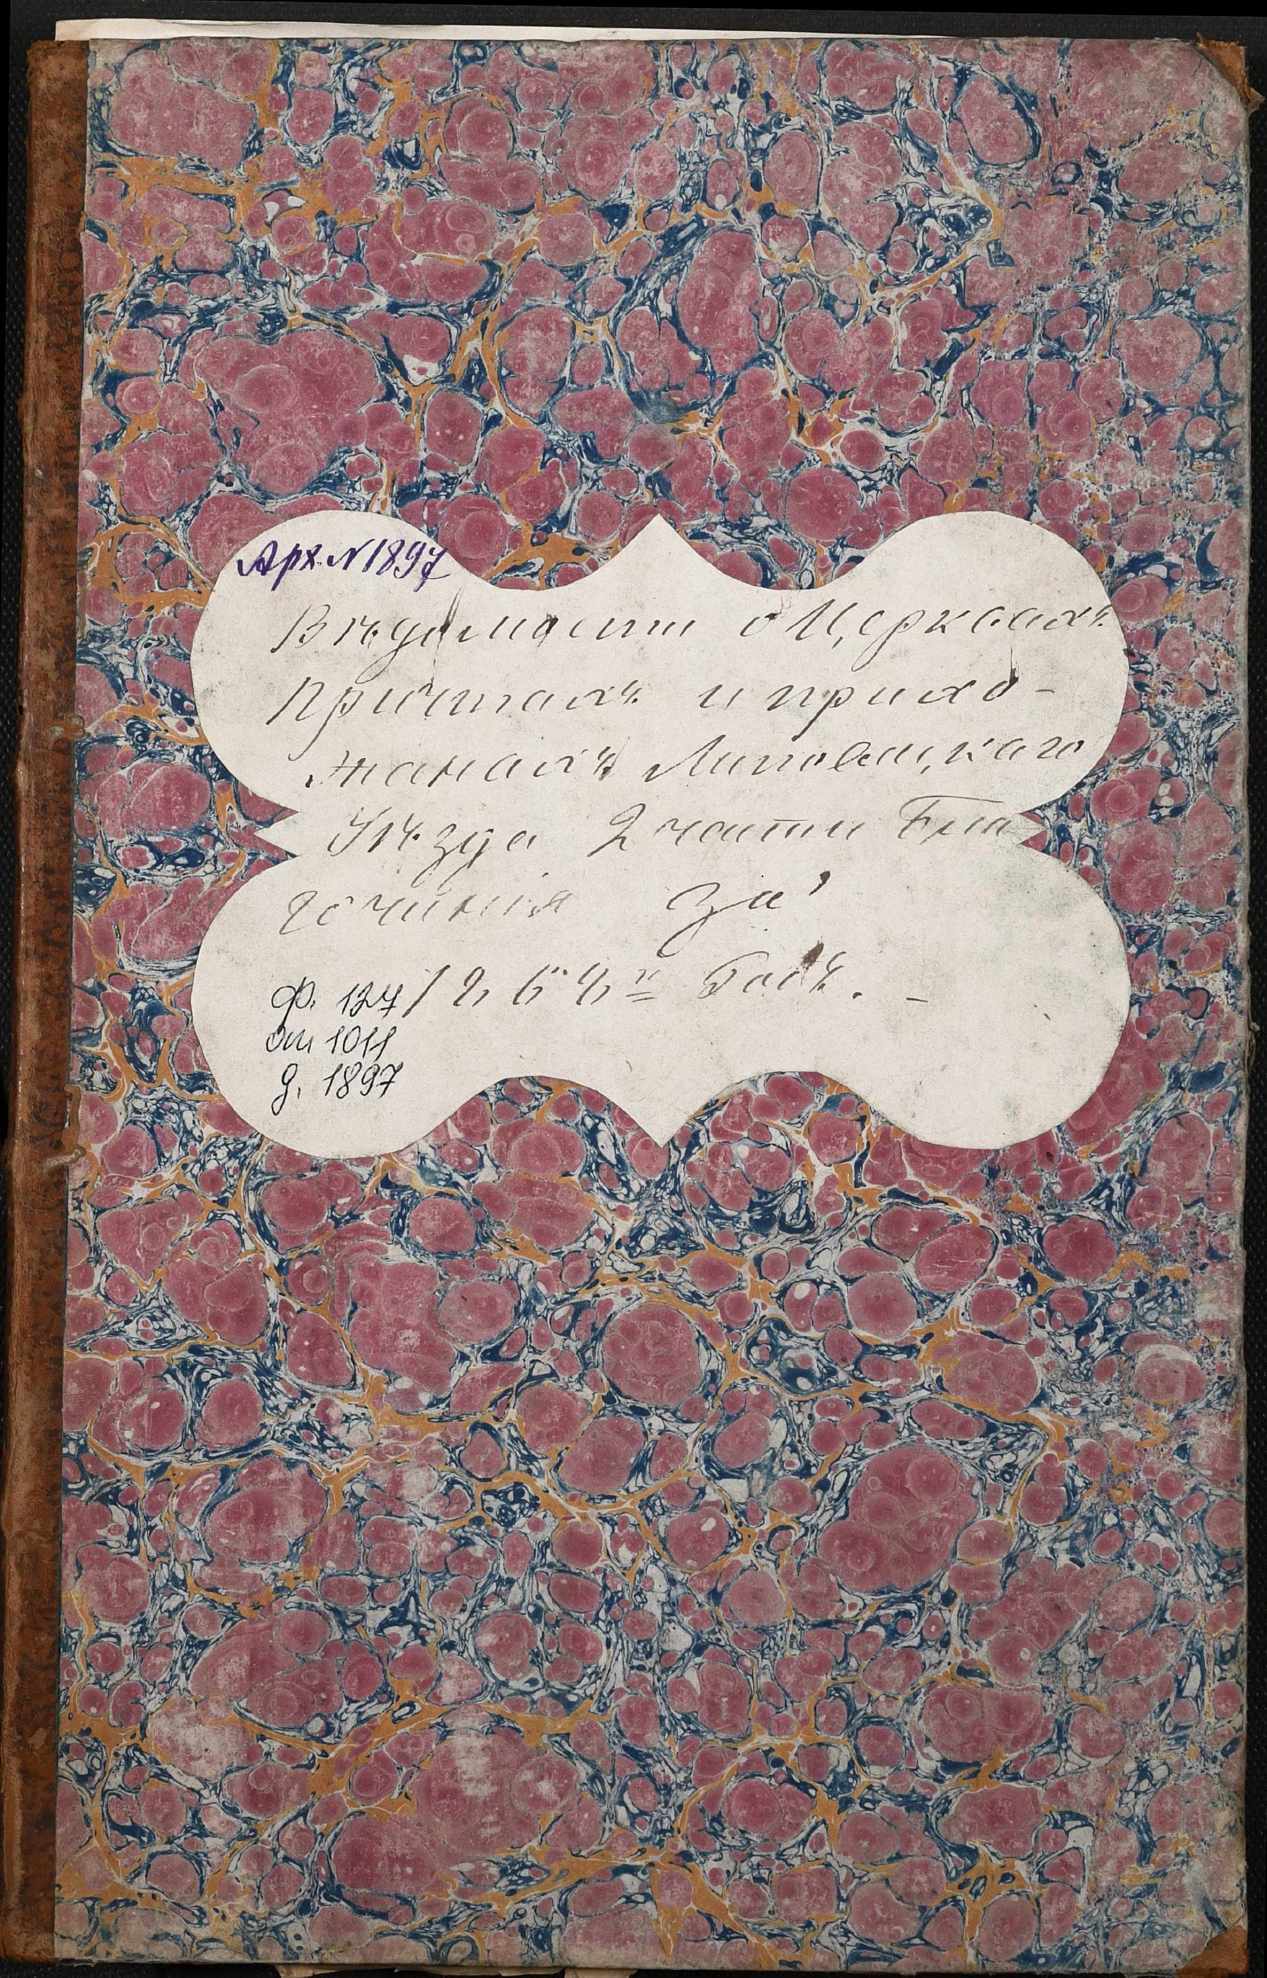 Арх. N 1897
Вѣдомости о Церквахъ
Причтахъ и прихо-
жанахъ Липовецкаго
Уѣзда 2 части Бла
гочинія за
Годъ. -
ф. 127
оп 1011
д. 1897